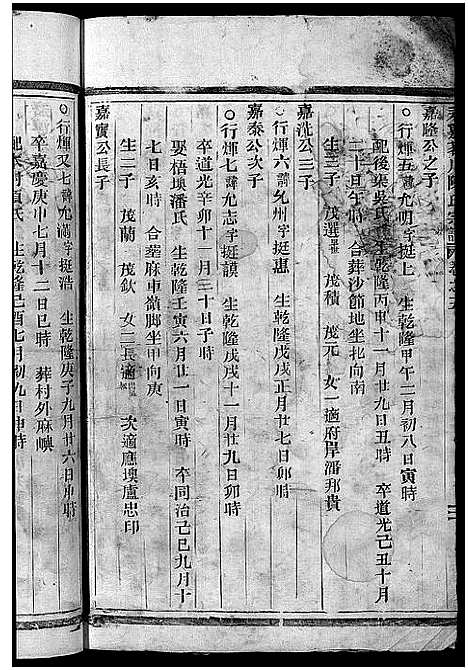 嘉隆公之子
○行煇五諱允明字挺上　生乾隆甲午二月初八日寅時
配後渠吳氏　生乾隆丙申十一月廿九日丑時　卒道光己丑十月
二十日午時　合葬沙節地坐北向南
生三子　茂選　茂積　茂元　女一適府岸潘邦貴
嘉洗公三子
○行煇六諱允州字挺惠　生乾隆戊戌正月廿七日卯時
嘉泰公次子
○行煇七諱允志字挺謨　生乾隆戊戌十一月廿九日卯時
卒道光辛卯十一月三十日子時
娶梧墺潘氏　生乾隆壬寅六月廿一日寅時　卒同治己巳九月十
七日亥時　合葬麻車嶺脚坐甲向庚
生二子　茂蘭　茂欽　女二長適　次適應墺盧忠印
嘉寶公長子
○行煇又七諱允滿字挺浩　生乾隆庚子九月廿六日申時
卒嘉慶庚申七月十二日巳時　葬村外麻嶼
生乾隆己酉七月初九日申時